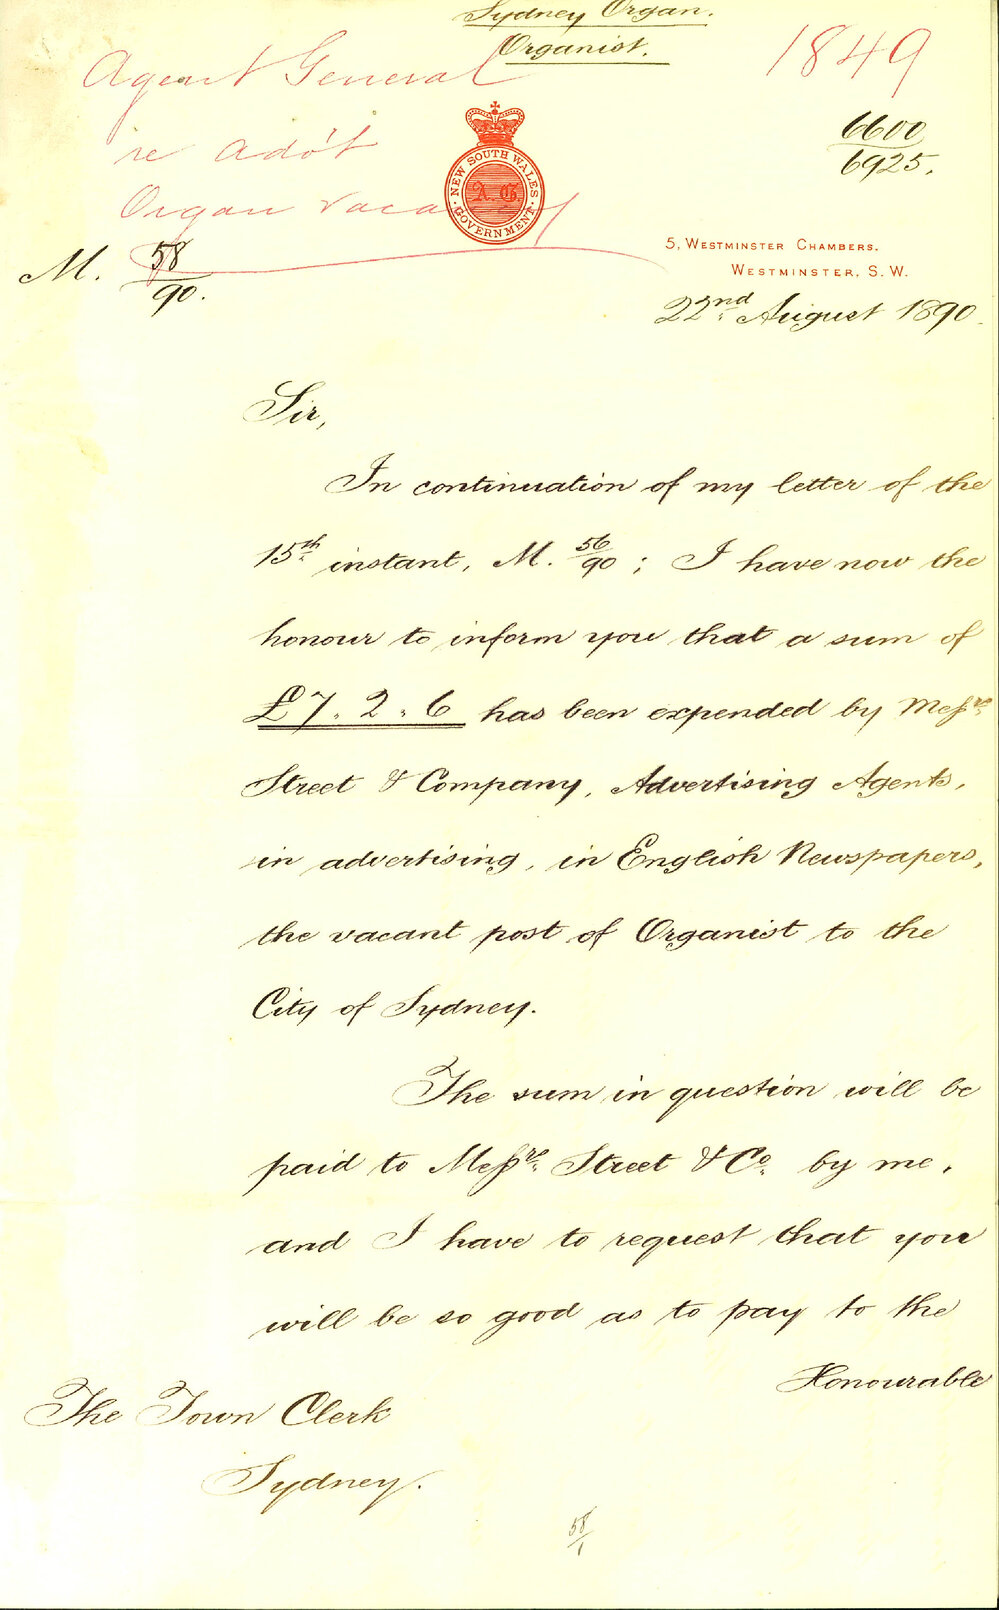 Sydney Organ.
Organist.
Agent General
1849
re Adv't
Organ Vacancy
6600
6925.
NEW SOUTH WALES
A.G.
GOVERNMENT
5, WESTMINSTER CHAMBERS.
WESTMINSTER, S.W.
M. 58/90.
22nd August 1890.
Sir,
In continuation of my letter of the
15th instant, M. 56/90; I have now the
honour to inform you that a sum of
£7. 2. 6 has been expended by Messrs.
Street & Company, Advertising Agents,
in advertising, in English Newspapers,
the vacant post of Organist to the
City of Sydney.
The sum in question will be
paid to Messrs. Street & Co. by me,
and I have to request that you
will be so good as to pay to the
Honourable
The Town Clerk
Sydney.
58/1